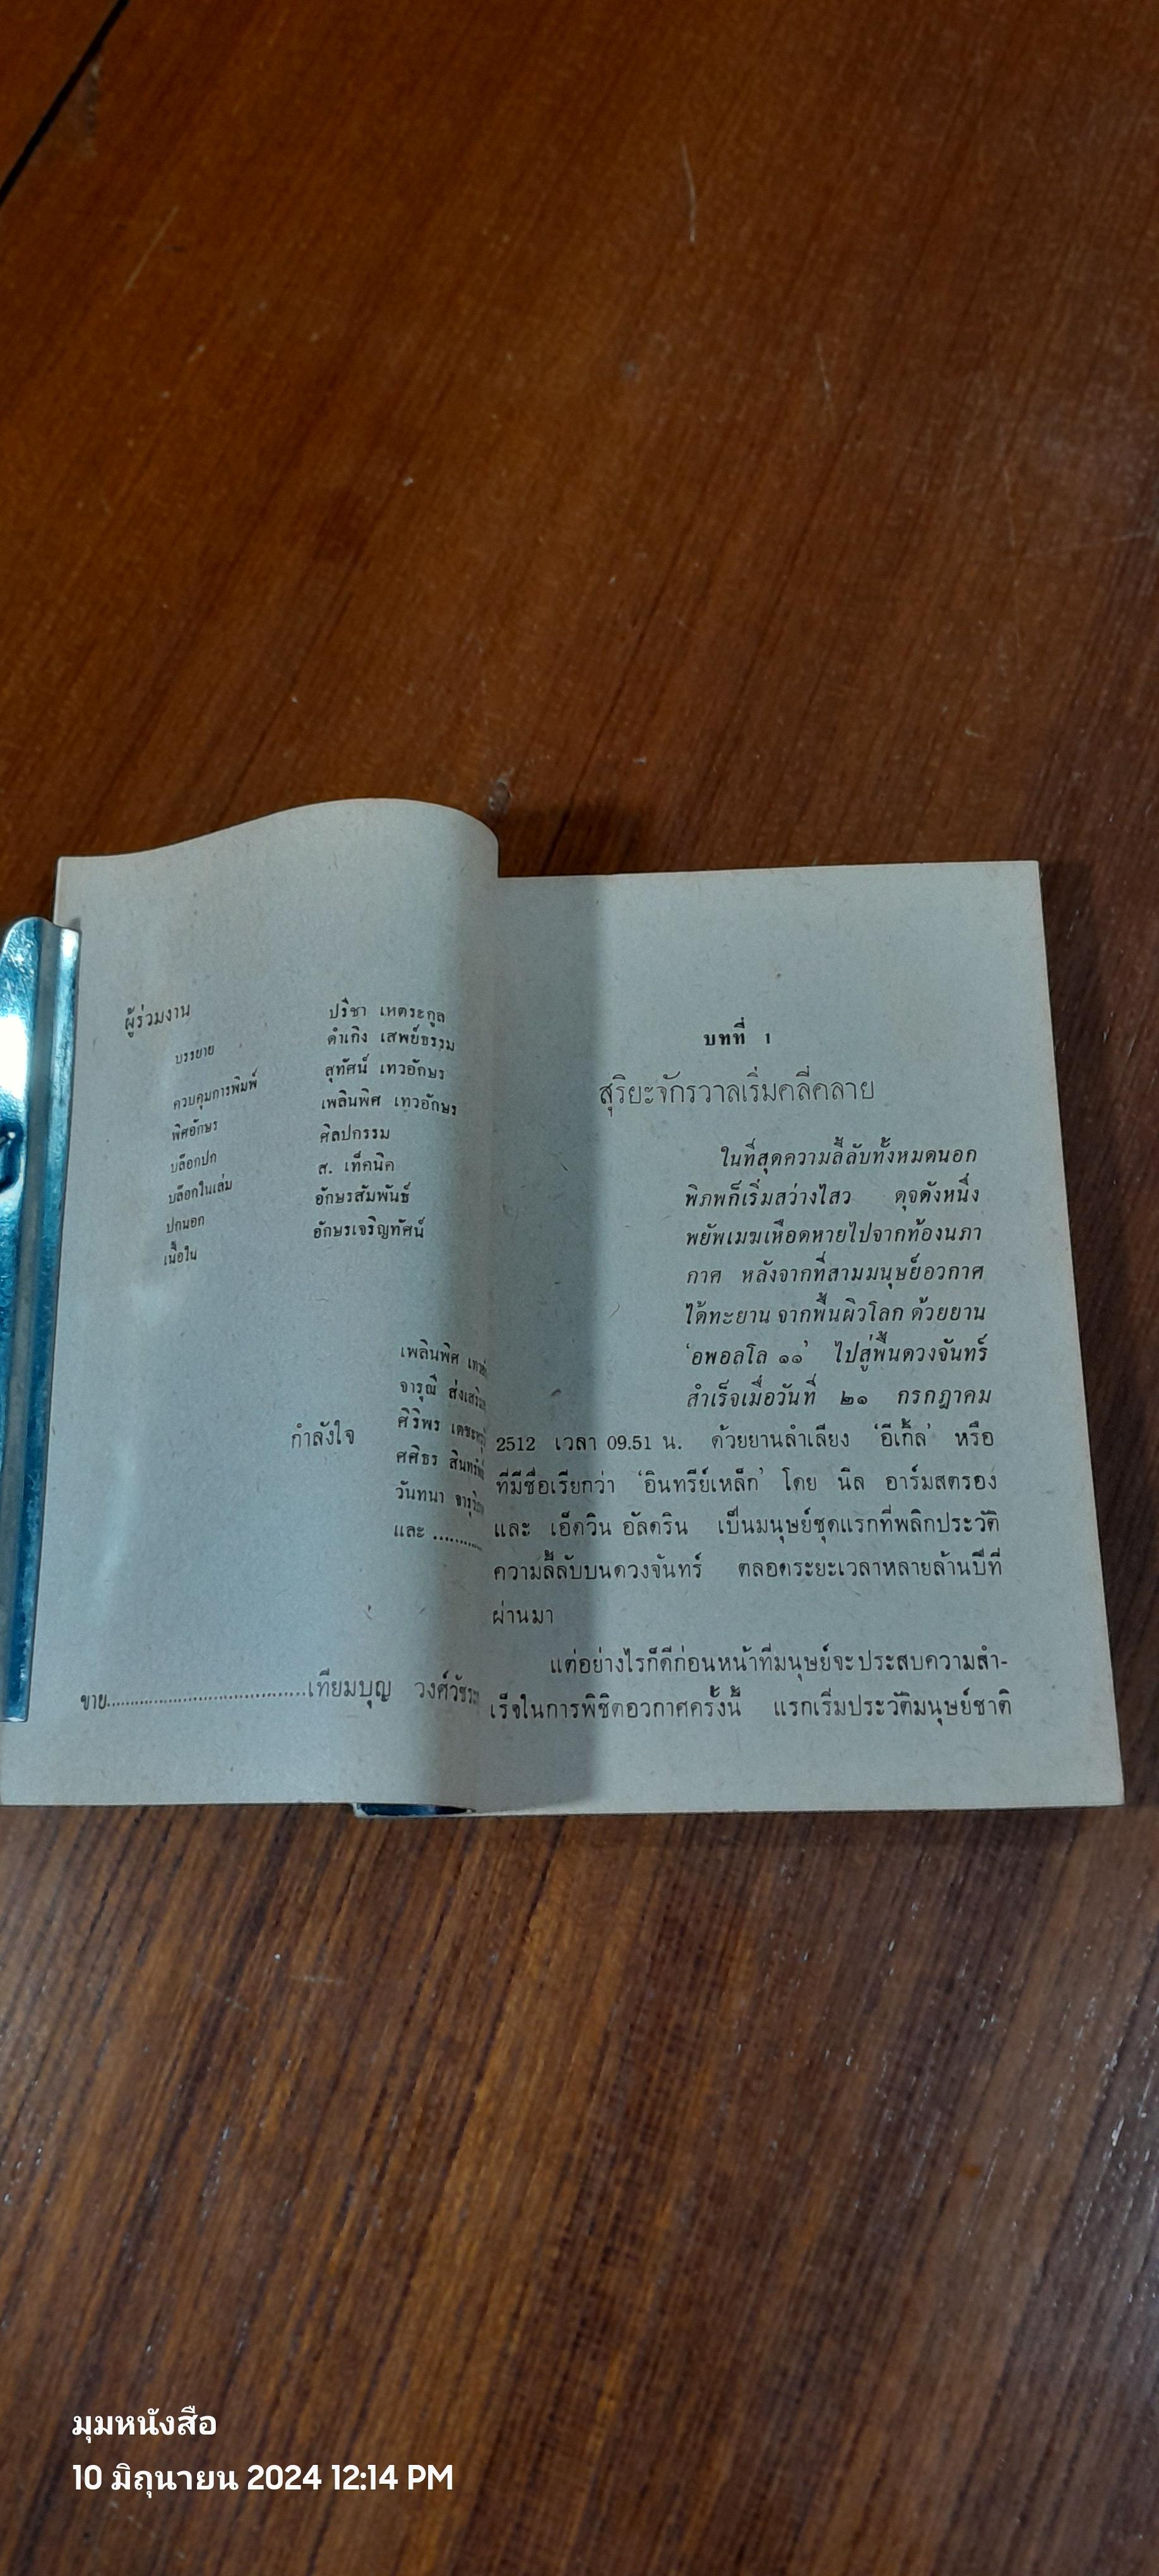 ผู้ร่วมงาน
บรรยาย
ควบคุมการพิมพ์
พิศอักษร
บล๊อกปก
บล๊อกในเล่ม
ปกนอก
เนื้อใน
ปรีชา เหตระกูล
ดำเกิง เสพย์ธรรม
สุทัศน์ เทวอักษร
เพลินพิศ เทวอักษร
ศิลปกรรม
ส. เท็คนิค
อักษรสัมพันธ์
อักษรเจริญทัศน์
กำลังใจ
เพลินพิศ
จารุณี
ศิริพร
ศศิธร
วันทนา
และ ...........
ขาย......................................เทียมบุญ
บทที่ 1
สุริยะจักรวาลเริ่มคลี่คลาย
ในที่สุดความลี้ลับทั้งหมดนอก
พิภพก็เริ่มสว่างไสว ดุจดังหนึ่ง
พยัพเมฆเหือดหายไปจากท้องนภา
กาศ หลังจากที่สามมนุษย์อวกาศ
ได้ทะยาน จากพื้นผิวโลก ด้วยยาน
‘อพอลโล ๑๑’ ไปสู่พื้นดวงจันทร์
สำเร็จเมื่อวันที่ ๒๑ กรกฎาคม
2512 เวลา 09.51 น. ด้วยยานลำเลียง ‘อีเกิ้ล’ หรือ
ที่มีชื่อเรียกว่า ‘อินทรีย์เหล็ก’ โดย นีล อาร์มสตรอง
และ เอ็ดวิน อัลดริน เป็นมนุษย์ชุดแรกที่พลิกประวัติ
ความลี้ลับบนดวงจันทร์ ตลอดระยะเวลาหลายล้านปีที่
ผ่านมา
แต่อย่างไรก็ดีก่อนหน้าที่มนุษย์จะประสบความสำ-
เร็จในการพิชิตอวกาศครั้งนี้ แรกเริ่มประวัติมนุษย์ชาติ
มุมหนังสือ
10 มิถุนายน 2024 12:14 PM